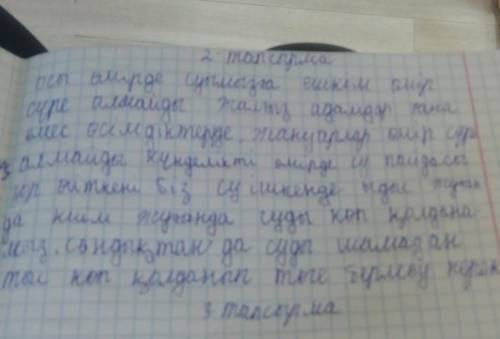 2-тапсырма
осы өмірде сусызға ешкім өмір
сүре алмайды жалғыз адамдар ғана
емес өсімдіктерде, жануарлар өмір сүре
алмайды күнделікті өмірде су пайдасы
зор өйткені біз су ішкенде ыдыс жуған
да киім жуғанда суды көп қолдана
мыз. сондықтан да суды шамадан
тыс көп қолданып төге бермеу керек
3 тапсырма